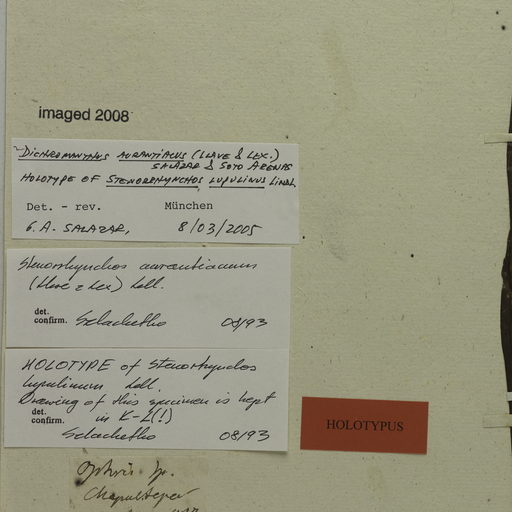 imaged 2008
DICHROMANTHUS AURANTIACUS (LLAVE & LEX.)
SALAZAR & SOTO ARENAS
HOLOTYPE OF STENORRHYNCHOS LUPULINUS LINDL.
Det. - rev. München
G. A. SALAZAR, 8/03/2005
Stenorrhynchos
(Llave & Lex)
det.
confirm. Szlachetko 08/93
HOLOTYPE of Stenorhynchos
lupulinum
Drawing of this specimen is kept
det. in K-L(!)
confirm.
Szlachetko 08/93
HOLOTYPUS
Ophris sp.
Chapultepec